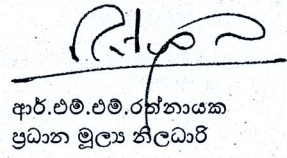 ආර්.එම්.එම්.රත්නායක
ප්‍රධාන මූල්‍ය නිලධාරි